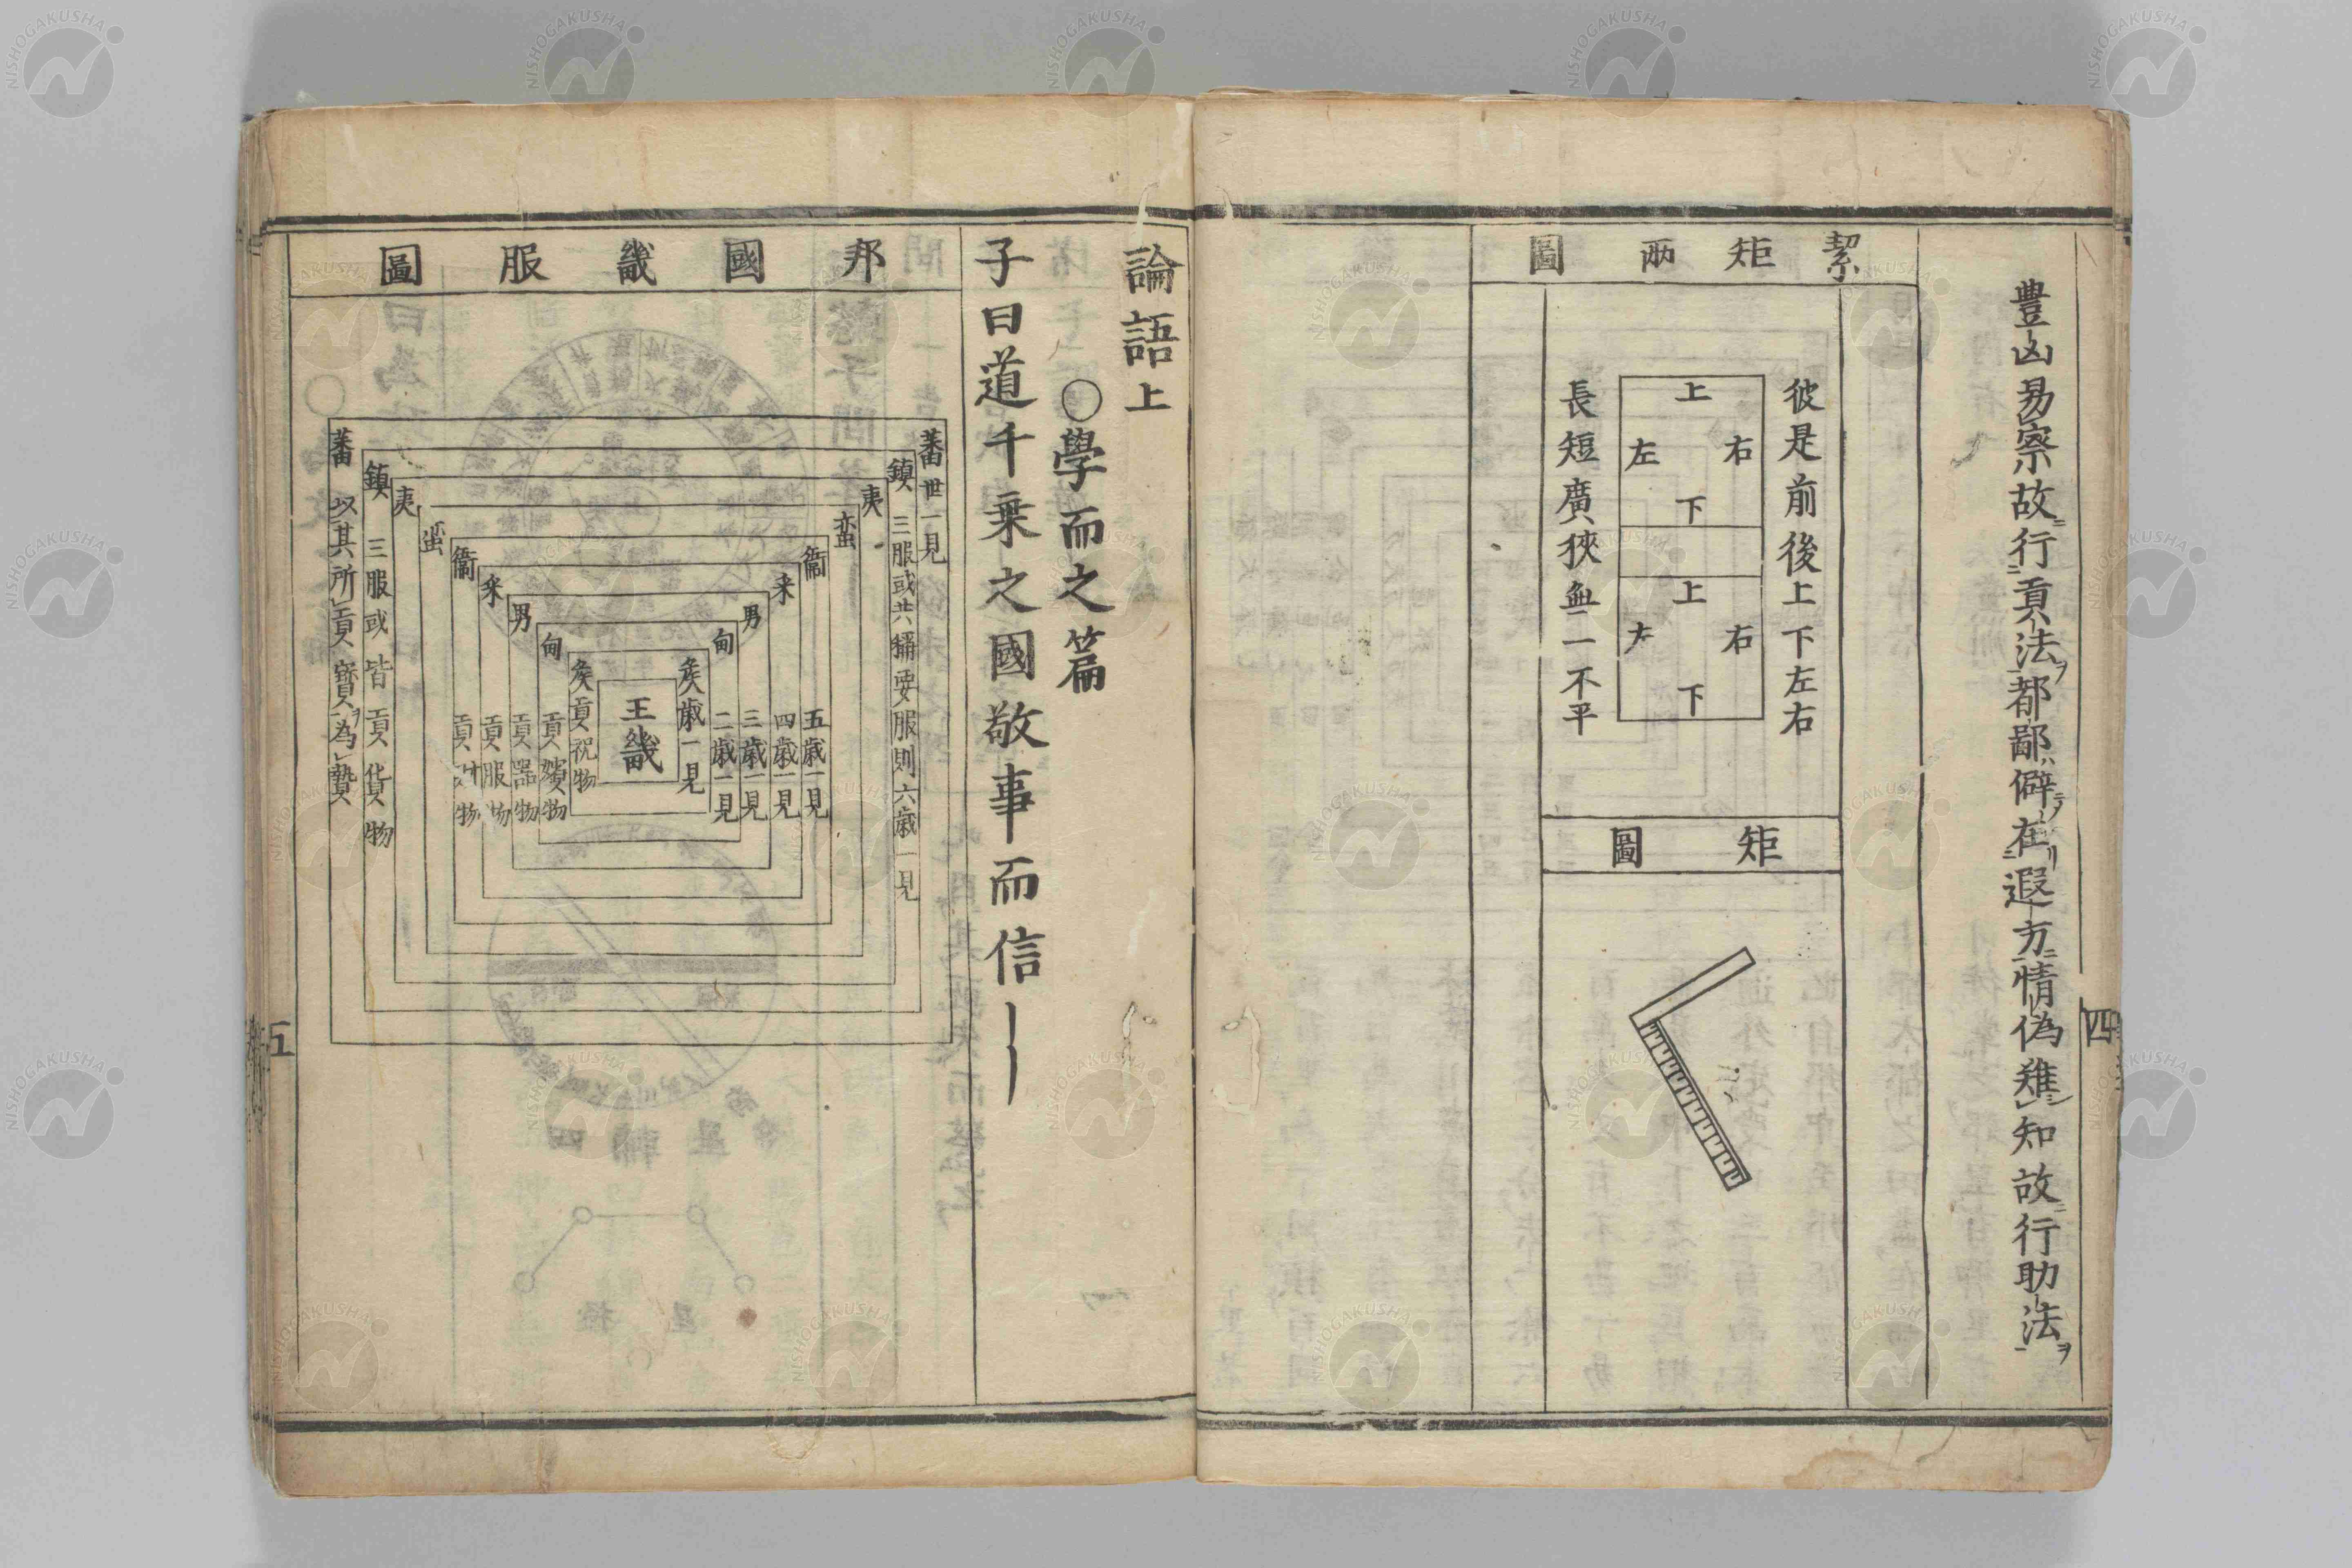 豊凶易察故行貢法ヲ都鄙ハ僻在遐方情偽難知故行助法ヲ
四
絜矩兩圖
彼是前後上下左右
上
右
左
下
上
右
左
下
長短廣狹無一不平
矩圖
論語上
○學而之篇
子曰道千乗之國敬事而信
邦國畿服圖
蕃世一見
鎮三服或共稱要服則六歳一見
夷
蛮
衞五歳一見
采四歳一見
男三歳一見
甸二歳一見
矦歳一見
王畿
矦貢祀物
甸貢嬪物
男貢器物
采貢服物
衞貢材物
蛮
夷
鎮三服或皆貢貨物
蕃以其所貢寶ヲ為贄
五
NISHOGAKUSHA